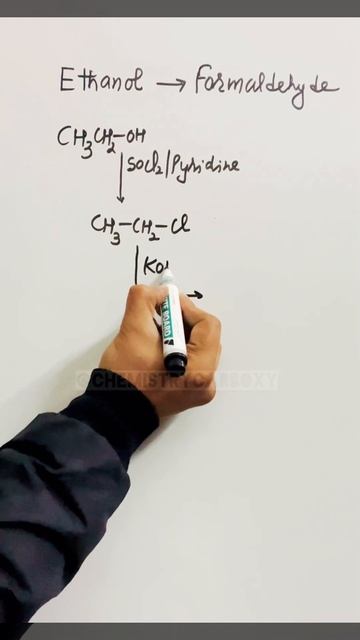 Ethanol → Formaldehyde
CH3CH2-OH
SOCl2/Pyridine
CH3-CH2-Cl
@CHEMISTRYCARBOXY